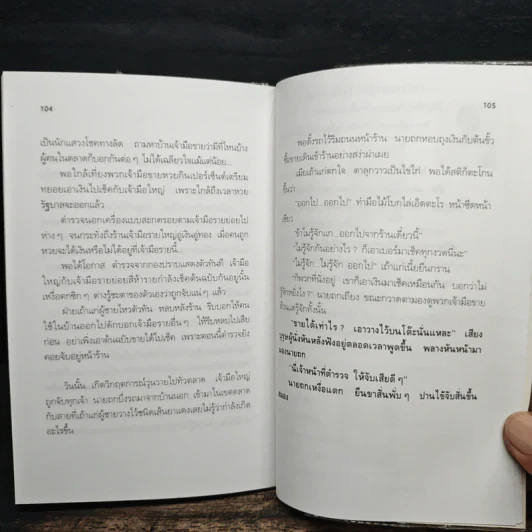 104
เป็นนักแสวงโชคทางลัด ถามหาบ้านเจ้ามือขายว่ามีที่ไหนบ้าง
ผู้คนในตลาดก็บอกกันต่อๆ ไม่ได้เฉลียวใจแม้แต่น้อย...
พอใกล้เที่ยงพวกเจ้ามือขายหวยกินเปอร์เซ็นต์เตรียม
ทยอยเอาเงินไปเช็คกับเจ้ามือใหญ่ เพราะใกล้ถึงเวลาหวย
รัฐบาลจะออกแล้ว
ตำรวจนอกเครื่องแบบสะกดรอยตามเจ้ามือรายย่อยไป
ห่างๆ จนกระทั่งถึงร้านเจ้ามือรายใหญ่อู่เงินอู่ทอง เมื่อคนถูก
หวยจะได้เงินหรือไม่ได้อยู่ที่เจ้ามือรายนี้...
พอได้โอกาส ตำรวจจากกองปราบแสดงตัวทันที เจ้ามือ
ใหญ่กับเจ้ามือรายย่อยสี่ห้ารายกำลังเช็คต้นฉบับกันอยู่นั้น
เหงื่อตกซิกๆ ต่างรู้ชะตาของตัวเองว่าถูกจับแน่ๆ แล้ว
ฝ่ายเถ้าแก่ผู้ชายไหวตัวทัน หลบหลังร้าน รีบบอกให้คน
ใช้ในบ้านออกไปดักบอกเจ้ามือรายอื่นๆ ให้รีบหลบไปเสีย
ก่อน อย่าเพิ่งเอาต้นฉบับขายไปให้ได้เช็ค เพราะตอนนี้ตำรวจยัง
คอยจับอยู่หน้าร้าน
วันนั้น เกิดวิกฤตการณ์วุ่นวายไปทั่วตลาด เจ้ามือใหญ่
ถูกจับทุกเจ้า นายถกยิ่งรถมาจากบ้านนอก เข้ามาในเขตตลาด
กับสายที่เถ้าแก่ผู้ชายวางไว้ชนิดเส้นยาแดงเลยไม่รู้ว่ากำลังเกิด
อะไรขึ้น
105
พอตั้งรถไว้ริมถนนหน้าร้าน นายถกหอบถุงเงินกับต้นขั้ว
ซื้อขายเดินเข้าร้านอย่างสง่าผ่าเผย
เมียเถ้าแก่ตกใจ ตาลุกวาวเป็นไข่ไก่ พอได้สติก็ตะโกน
ขึ้นว่า
"ออกไป...ออกไป" ทำมือไม้โบกไล่เอ็ดตะโร หน้าซีดหน้า
เสียว
"ข้าไม่รู้จักแก ออกไปจากร้านเดี๋ยวนี้"
"ไม่รู้จักกันอย่างไร ? ก็เอาเบอร์มาเช็คทุกงวดนี่นะ"
"ไม่รู้จัก...ไม่รู้จัก ออกไป" เถ้าแก่เนี้ยยืนกราน
"ก็พวกที่นั่งอยู่ เขาก็เอาเงินมาเช็คเหมือนกัน บอกว่าไม่
รู้จักหยังไง ? นายถกเถียง ขณะกวาดตามองดูพวกเจ้ามือขาย
ล้วนแต่รู้จักทั้งนั้น
"ขายได้เท่าไร ? เอาวางไว้บนโต๊ะนั่นแหละ" เสียง
บุรุษผู้นั่งหันหลังฟังอยู่ตลอดเวลาพูดขึ้น พลางหันหน้ามา
มองนายถก
"นี่เจ้าหน้าที่ตำรวจ ให้จับเสียดีๆ"
นายถกเหงื่อแตก ยืนขาสั่นพั่บๆ ปานไข้จับสั่นขึ้น
สมอง